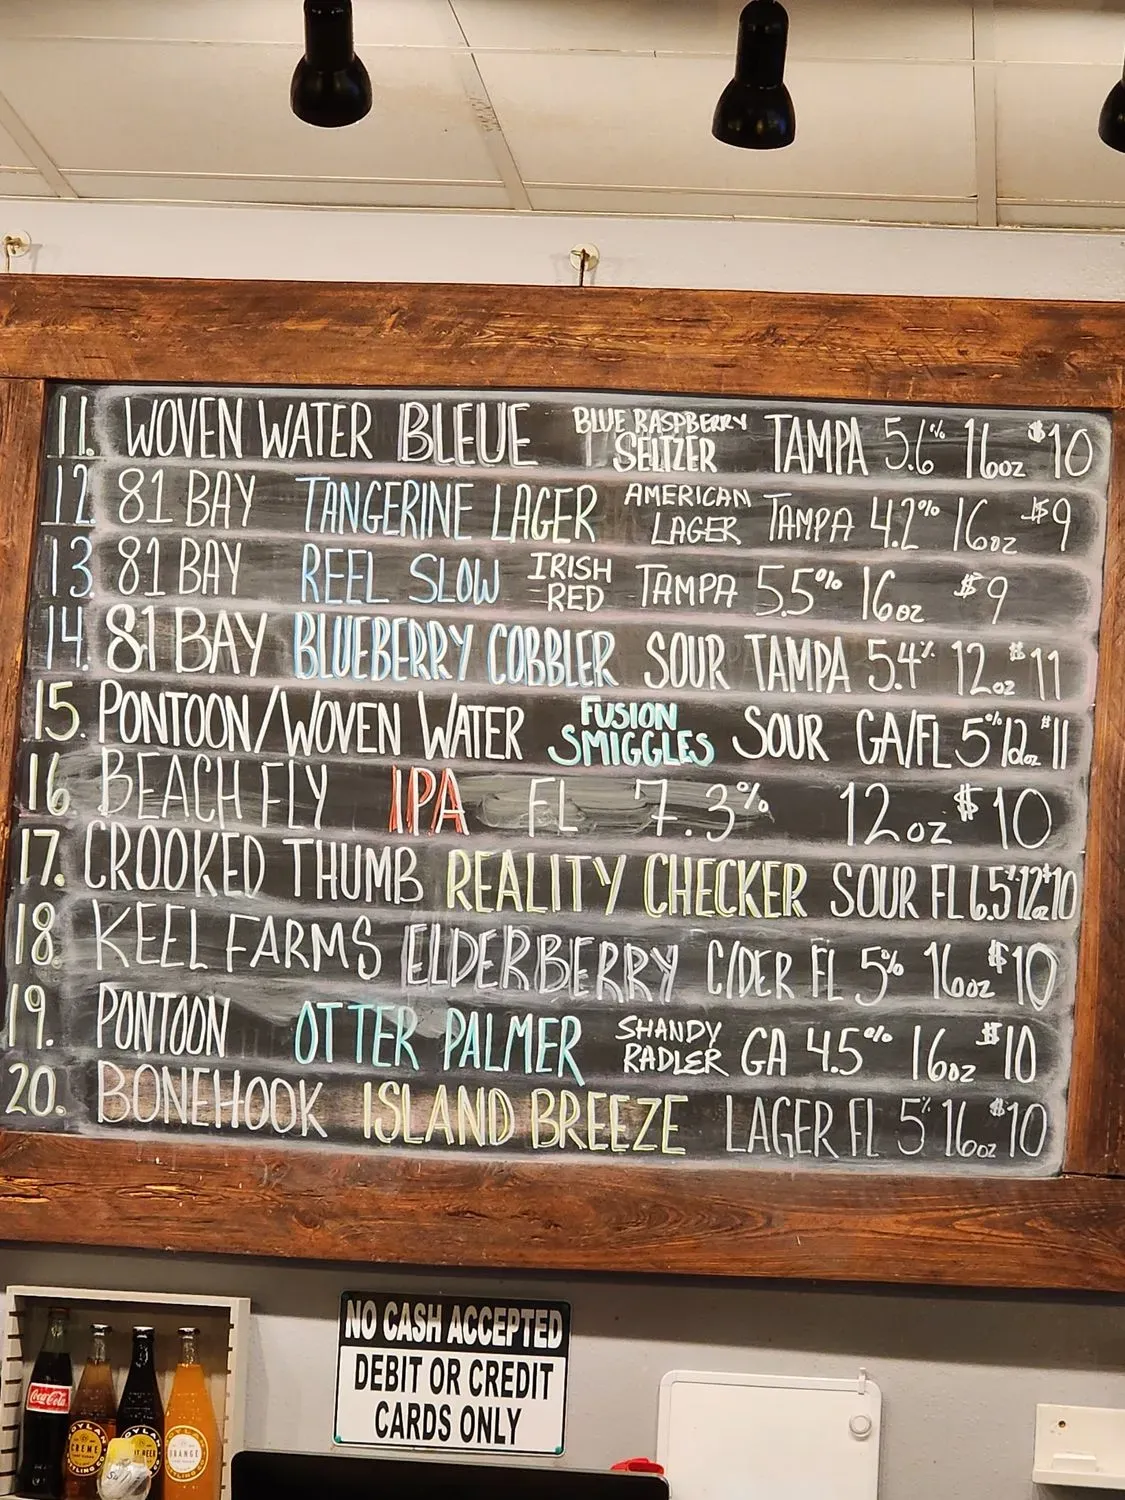 11. WOVEN WATER BLEUE BLUE RASPBERRY SELTZER TAMPA 5.6% 16oz $10
12. 81 BAY TANGERINE LAGER AMERICAN LAGER TAMPA 4.2% 16oz $9
13. 81 BAY REEL SLOW IRISH RED TAMPA 5.5% 16oz $9
14. 81 BAY BLUEBERRY COBBLER SOUR TAMPA 5.4% 12oz $11
15. PONTOON/WOVEN WATER FUSION SMIGGLES SOUR GA/FL 5% 12oz $11
16 BEACH FLY IPA FL 7.3% 12oz $10
17. CROOKED THUMB REALITY CHECKER SOUR FL 6.5% 12oz $10
18. KEEL FARMS ELDERBERRY CIDER FL 5% 16oz $10
19. PONTOON OTTER PALMER SHANDY RADLER GA 4.5% 16oz $10
20. BONEHOOK ISLAND BREEZE LAGER FL 5% 16oz $10
NO CASH ACCEPTED
DEBIT OR CREDIT
CARDS ONLY
Coca-Cola
CREME
ORANGE